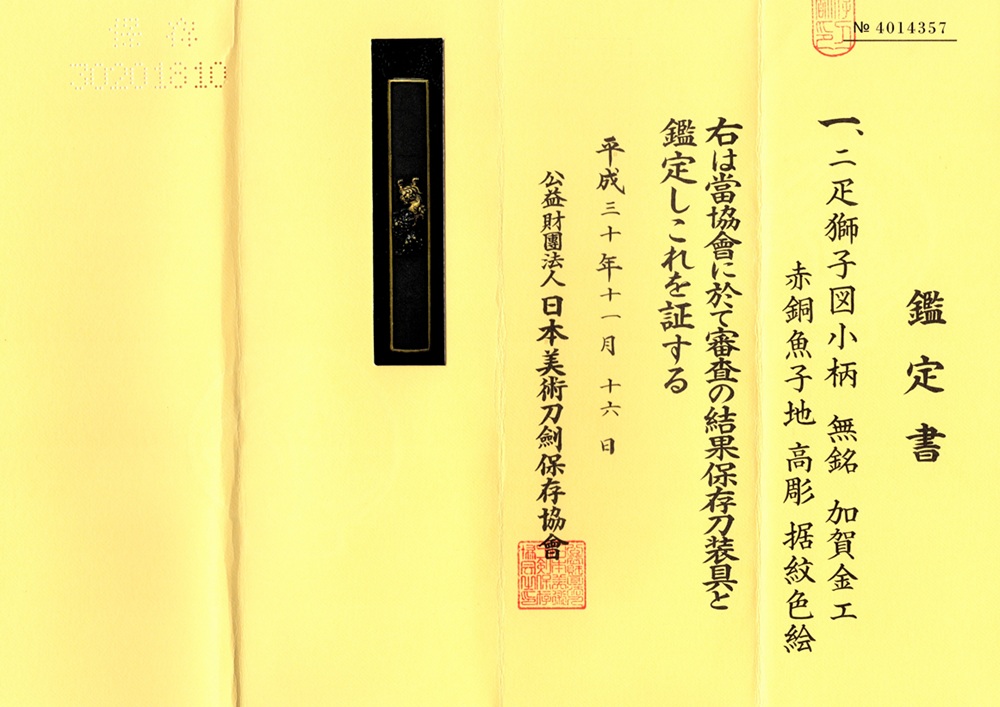 № 4014357
鑑定書
一、二疋獅子図小柄 無銘 加賀金工
赤銅魚子地 高彫 据紋色絵
右は當協會に於て審査の結果保存刀装具と
鑑定しこれを証する
平成三十年十一月十六日
公益財團法人 日本美術刀劍保存協會
保存
30201810